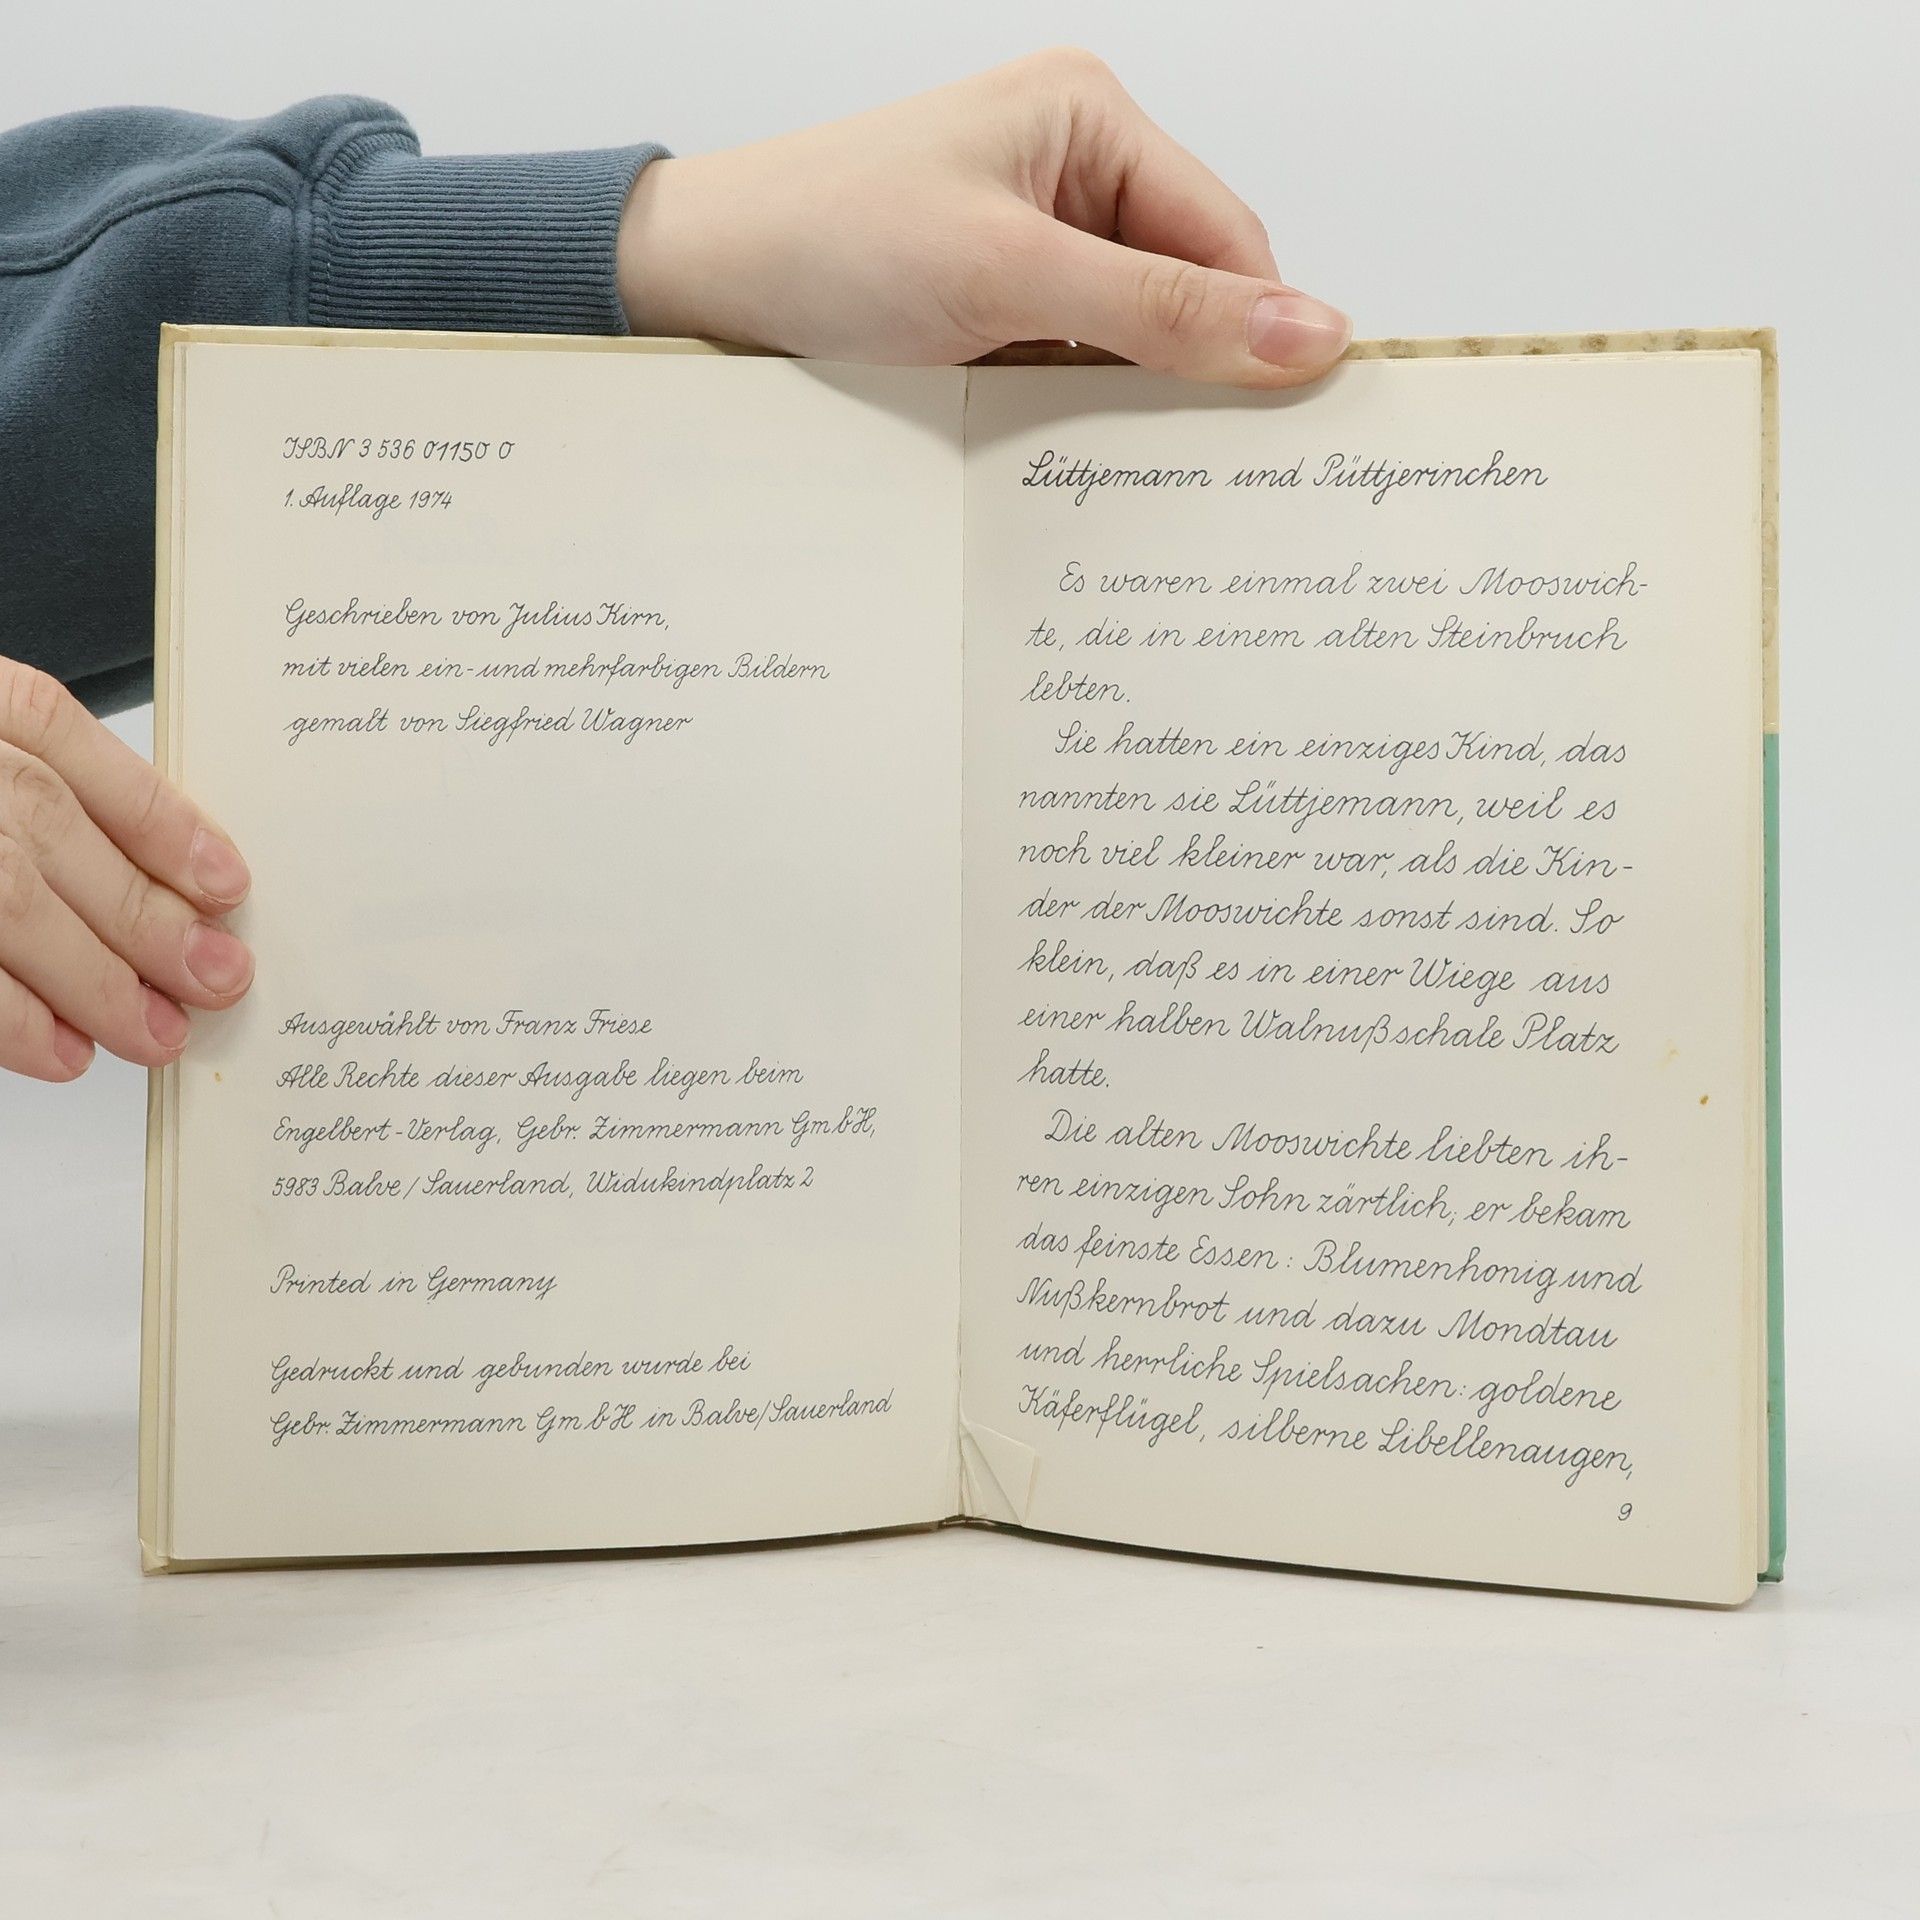 ISBN 3 536 01150 0
1. Auflage 1974
Geschrieben von Julius Kirn,
mit vielen ein- und mehrfarbigen Bildern
gemalt von Siegfried Wagner
Ausgewählt von Franz Friese
Alle Rechte dieser Ausgabe liegen beim
Engelbert-Verlag, Gebr. Zimmermann GmbH,
5983 Balve/Sauerland, Widukindplatz 2
Printed in Germany
Gedruckt und gebunden wurde bei
Gebr. Zimmermann GmbH in Balve/Sauerland
Lüttjemann und Püttjerinchen
Es waren einmal zwei Mooswich-
te, die in einem alten Steinbruch
lebten.
Sie hatten ein einziges Kind, das
nannten sie Lüttjemann, weil es
noch viel kleiner war, als die Kin-
der der Mooswichte sonst sind. So
klein, daß es in einer Wiege aus
einer halben Walnußschale Platz
hatte.
Die alten Mooswichte liebten ih-
ren einzigen Sohn zärtlich; er bekam
das feinste Essen: Blumenhonig und
Nußkernbrot und dazu Mondtau
und herrliche Spielsachen: goldene
Käferflügel, silberne Libellenaugen,
9